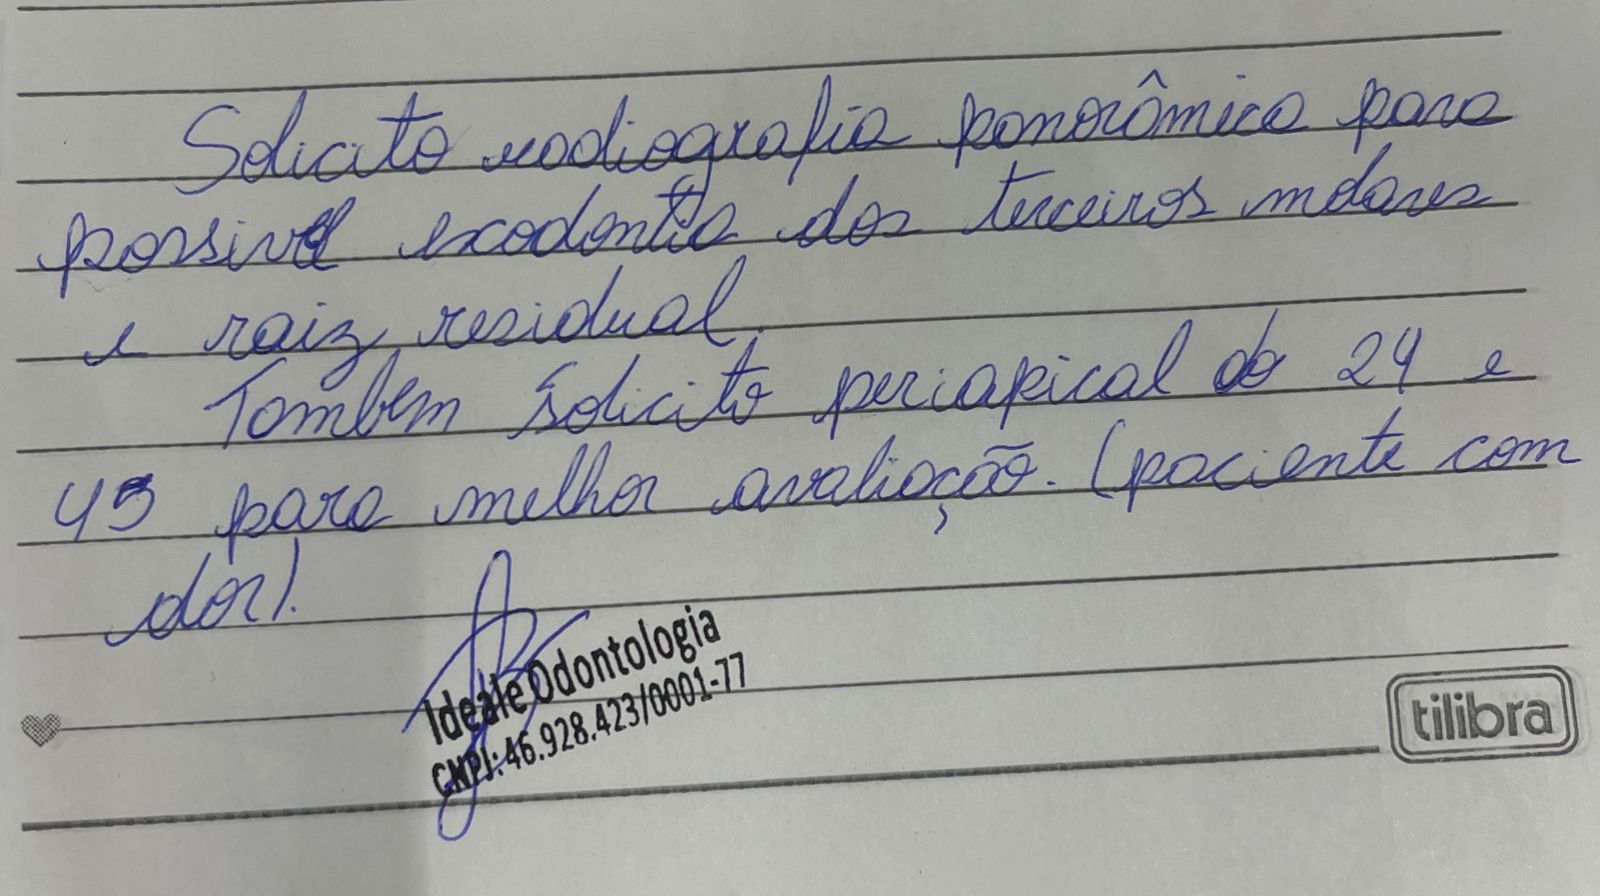 Solicito radiografia panorâmica para
possivel exodontia dos terceiros molares
e raiz residual.
Tambem solicito periapical do 24 e
45 para melhor avaliação. (paciente com
dor).
Ideale Odontologia
CNPJ: 46.928.423/0001-77
tilibra